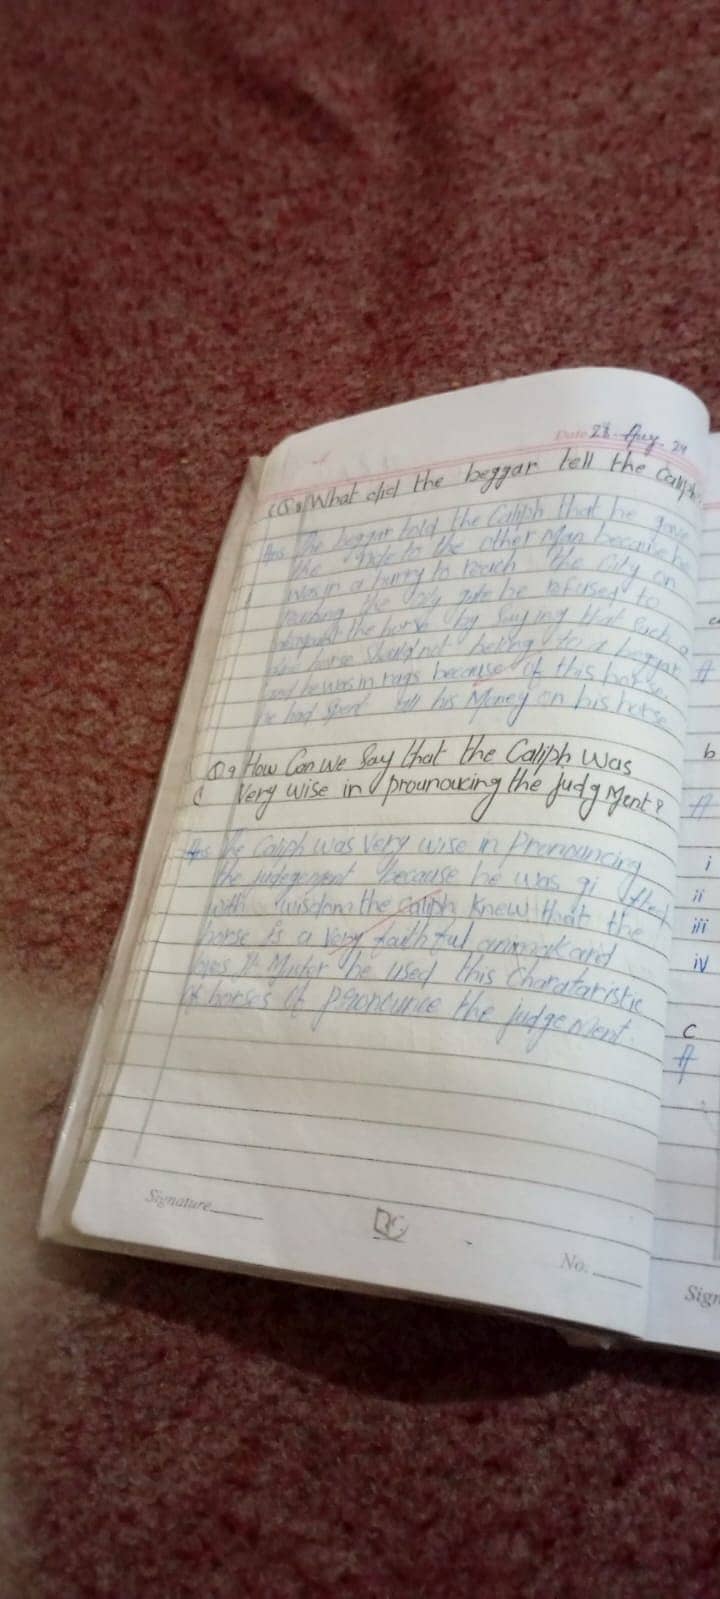 Date 28 Aug. 24
Q8 What did the beggar tell the Caliph
Ans The beggar told the Caliph that he gave
the ride to the other Man because he
was in a hurry to reach the City on
reaching the city gate he refused to
the horse by Saying that Such a
horse Should not belong to a beggar
and he was in rags because of this horse
he had Spent all his Money on his horse
Q9 How Can we Say that the Caliph was
Very wise in prounoucing the judgMent?
Ans The Caliph was Very wise in Pronouncing
the judegement because he was gifted
with wisdom the caliph Knew that the
horse is a Very faithful animal and
loves it Master he used this Charataristic
of horses pronounce the judgeMent.
Signature
No.
a
A
b
A
i
ii
iii
iv
c
A
Sign